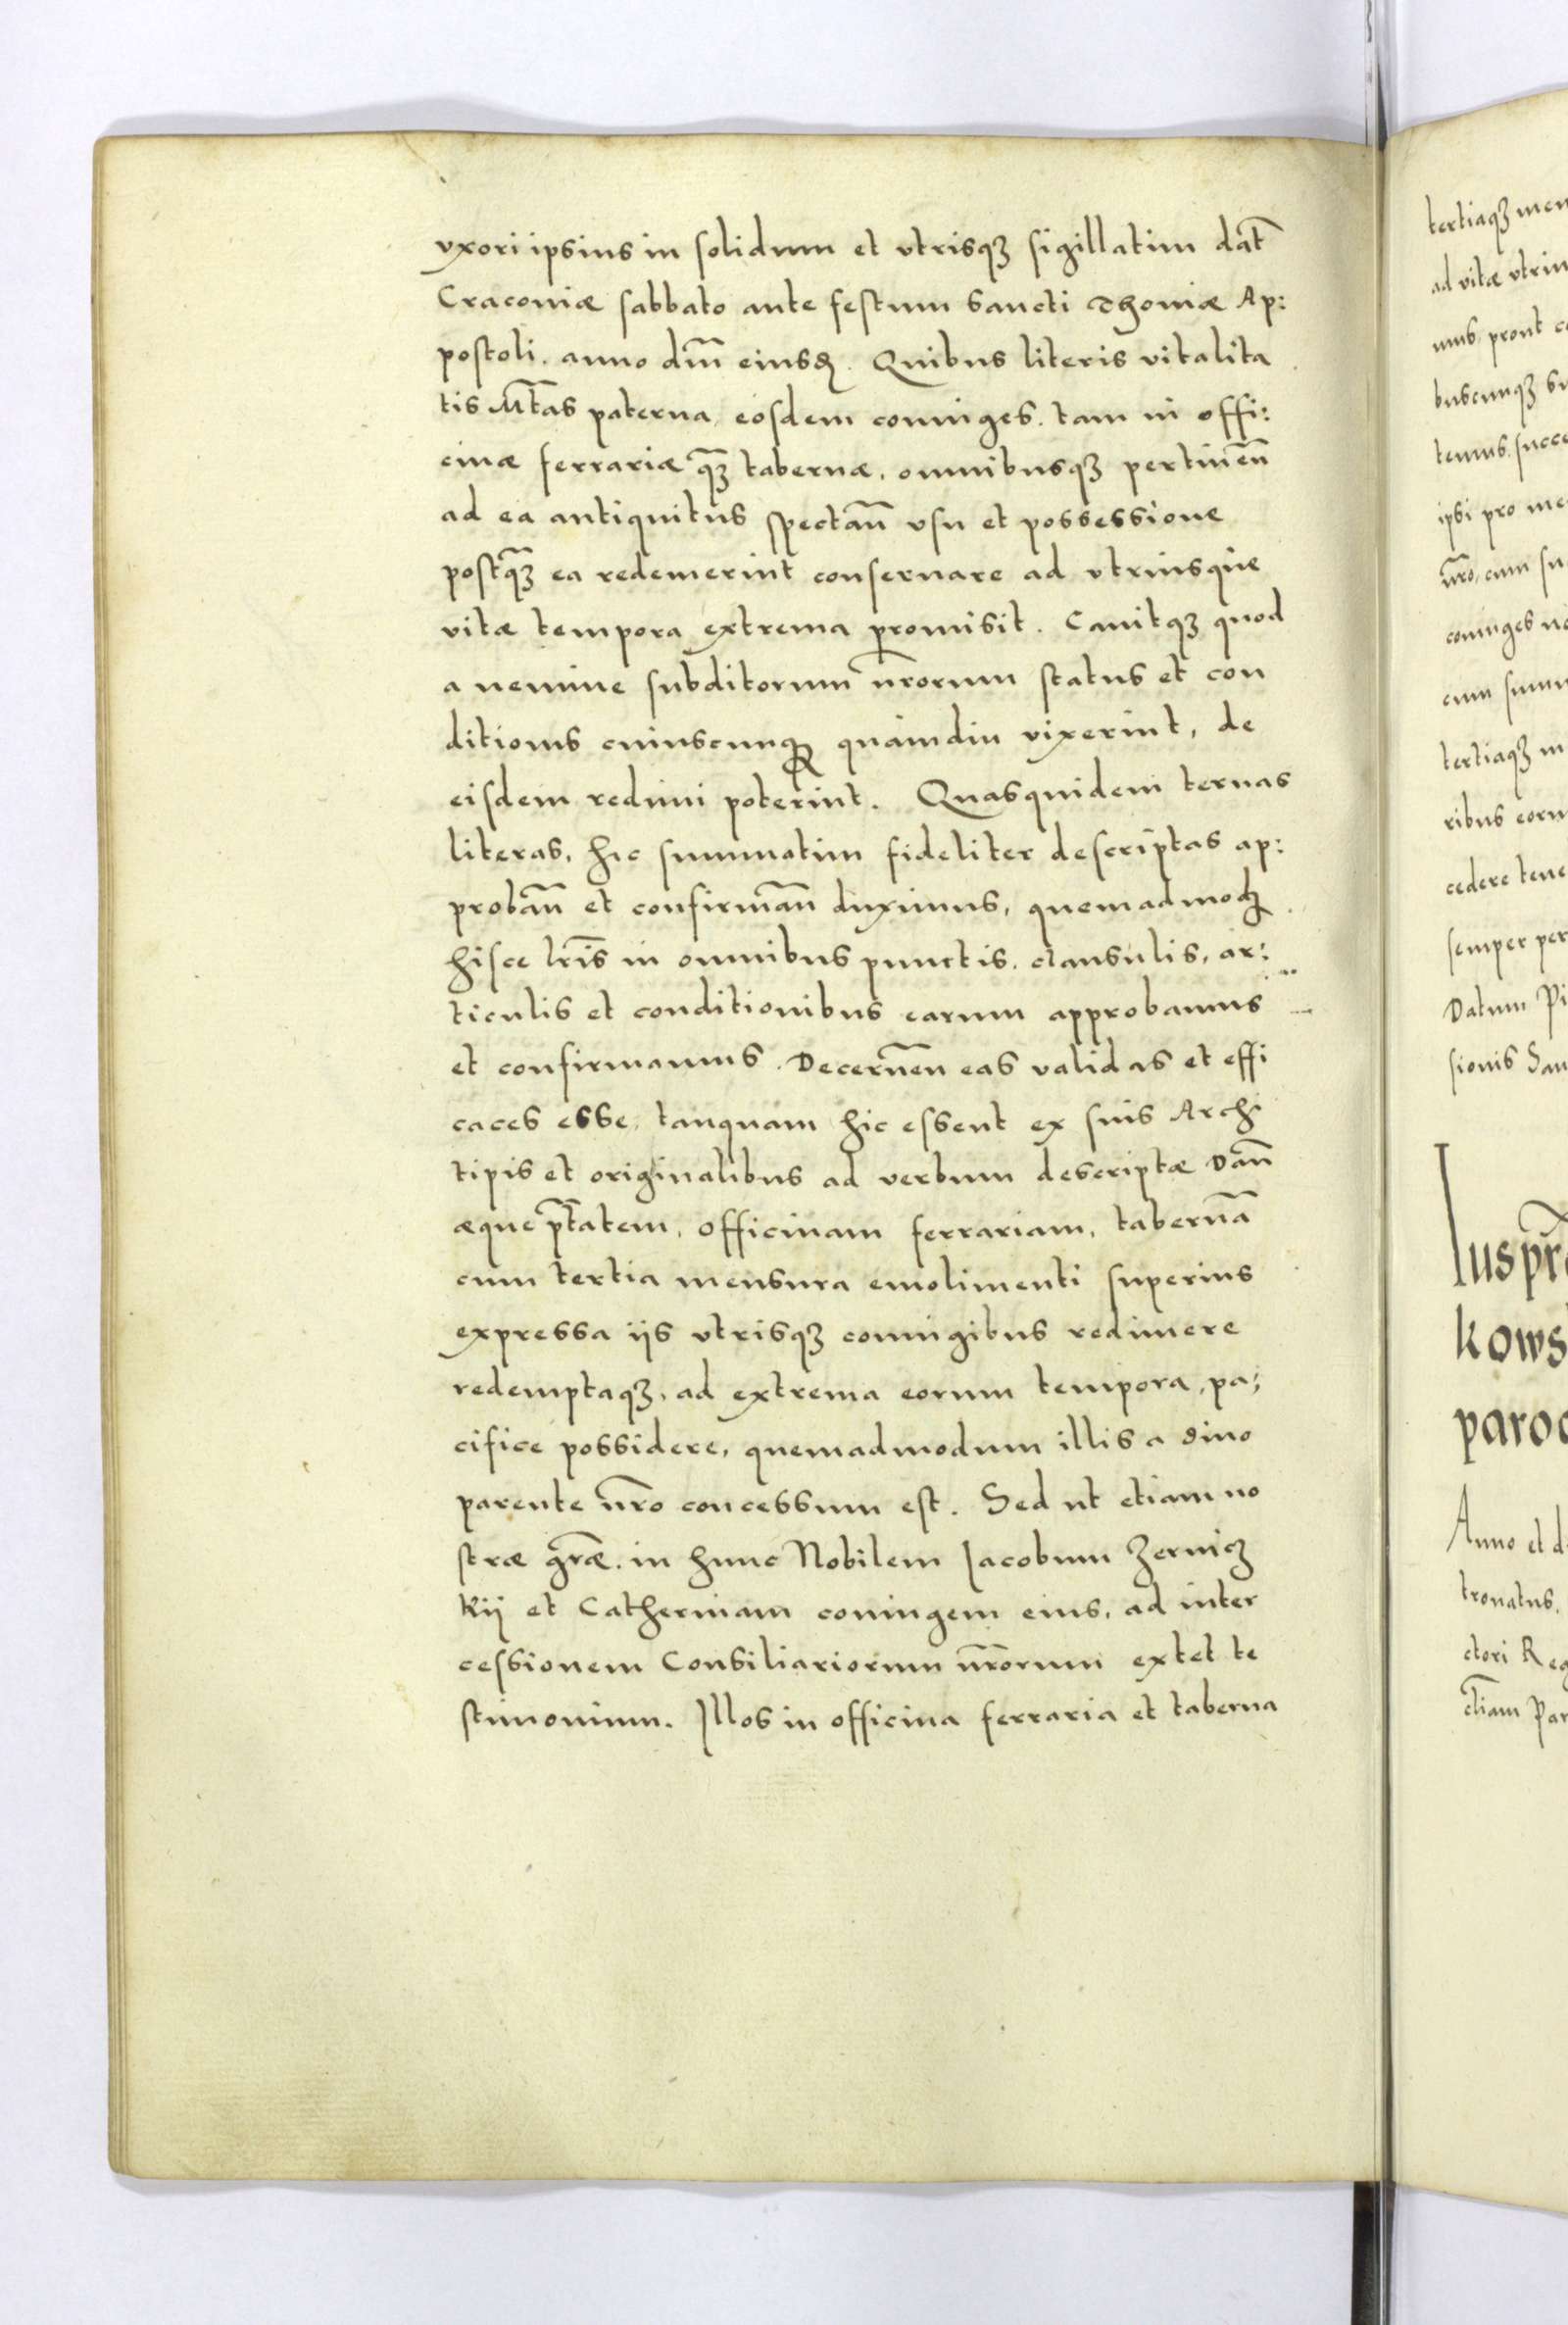 vxori ipsius in solidum et vtrisqꝫ sigillatim dat̃
Cracouiæ sabbato ante festum sancti Thomæ Ap:
postoli. anno dñi eiusdꝫ. Quibus literis vitalita
tis Mt̃as paterna, eosdem coniuges. tam in offi:
cinæ ferrariæ q̃ꝫ tabernæ, omnibusqꝫ pertineñ
ad ea antiquitus spectañ vsu et possessione
postq̃ꝫ ea redemerint conseruare ad vtriusque
vitæ tempora extrema promisit. Cauitqꝫ quod
a nemine subditorum nr̃orum status et con
ditionis cuiuscunqꝫ quamdiu vixerint, de
eisdem redimi poterint. Quasquidem ternas
literas, hic summatim fideliter descriptas ap:
probañ et confirmañ duximus, quemadmodꝫ
hisce lr̃is in omnibus punctis, clausulis, ar:
ticulis et conditionibus earum approbamus
et confirmamus. Decerneñ eas validas et effi
caces esse, tanquam hic essent ex suis Archi
tipis et originalibus ad verbum descriptæ Dañ
æque pt̃atem, officinam ferrariam, tabernã
cum tertia mensura emolimenti superius
expressa iis vtrisqꝫ coniugibus redimere
redemptaqꝫ, ad extrema eorum tempora, pa:
cifice possidere, quemadmodum illis a diuo
parente nr̃o concessum est. Sed ut etiam no
stræ gr̃æ. in hunc Nobilem Jacobum Zernicz
kij et Catherinam coniugem eius, ad inter
cessionem Consiliariorum nr̃orum extet te
stimonium. Illos in officina ferraria et taberna
tertiaqꝫ men
ad vitæ vtriu
mus, prout co
buscunqꝫ su
temus, succe
ipsi pro me
nr̃o, cum su
coniuges no
cum summ
tertiaqꝫ m
ribus eoru
cedere tene
semper per
Datum Pi
sionis San
Ius pr̃
kows
paroc
Anno et d
tronatus,
ctori Reg
etiam Par